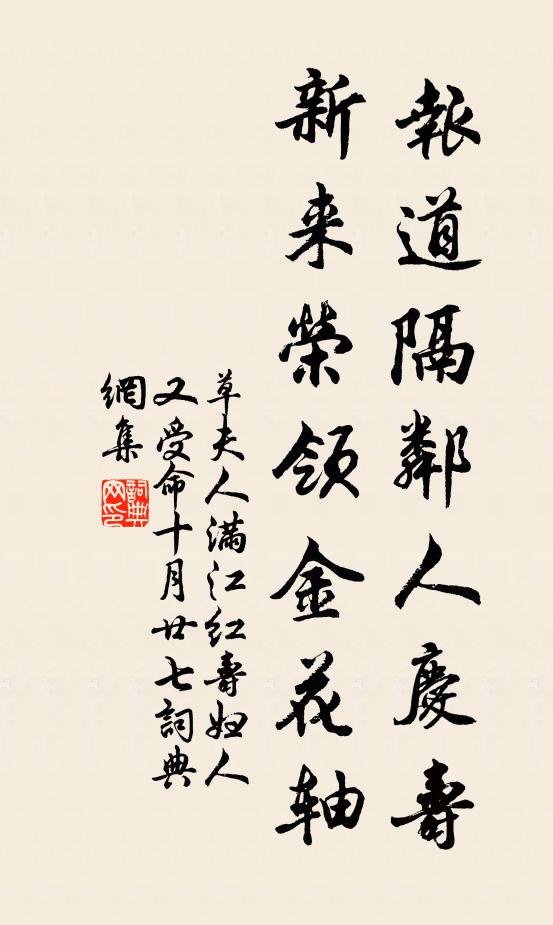 報道隔鄰人慶壽
新来榮領金花軸
草夫人滿江紅壽妇人
又受命十月廿七詞典
網集
詞典
网印